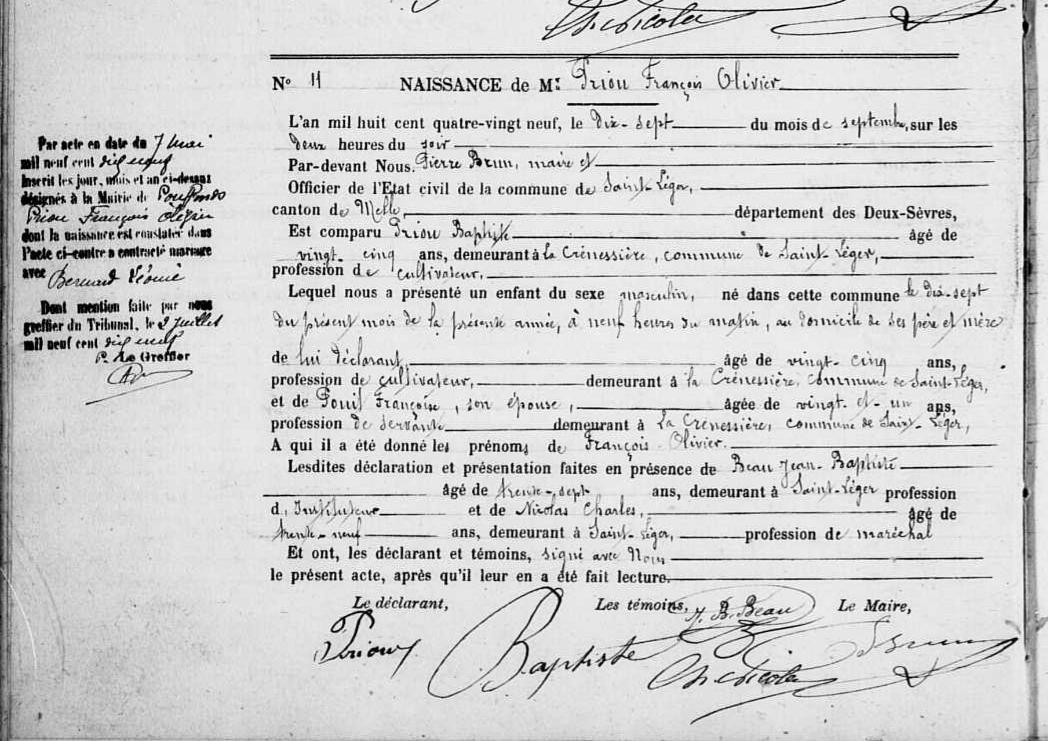 Ch. Nicolas
N° 11 NAISSANCE de M. Priou François Olivier
L'an mil huit cent quatre-vingt neuf, le dix-sept du mois de septembre, sur les
deux heures du soir
Par-devant Nous. Pierre Brun, maire et
Officier de l'Etat civil de la commune de Saint-Léger,
canton de Melle, département des Deux-Sèvres,
Est comparu Priou Baptiste âgé de
vingt-cinq ans, demeurant à la Crénessière, commune de Saint-Léger,
profession de cultivateur,
Lequel nous a présenté un enfant du sexe masculin, né dans cette commune le dix-sept
du présent mois de la présente année, à neuf heures du matin, au domicile de ses père et mère
de lui déclarant, âgé de vingt-cinq ans,
profession de cultivateur, demeurant à la Crénessière, commune de Saint-Léger,
et de Françoise, son épouse, âgée de vingt-et-un ans,
profession de servante demeurant à La Crénessière, commune de Saint-Léger,
A qui il a été donné les prénoms de François-Olivier.
Lesdites déclaration et présentation faites en présence de Beau Jean-Baptiste
âgé de trente-sept ans, demeurant à Saint-Léger profession
d'Instituteur et de Nicolas Charles, âgé de
trente-neuf ans, demeurant à Saint-Léger, profession de maréchal
Et ont, les déclarant et témoins, signé avec Nous
le présent acte, après qu'il leur en a été fait lecture.
Le déclarant, Les témoins, J. B. Beau Le Maire,
Priou Baptiste Ch. Nicolas Brun
Par acte en date du 7 mai
mil neuf cent dix neuf
Inscrit les jour, mois et an ci-dessus
désignés à la Mairie de Pouffonds
Priou François Olivier
dont la naissance est constatée dans
l'acte ci-contre a contracté mariage
avec
Bernard Léonie
Dont mention faite par nous
greffier du Tribunal, le 2 Juillet
mil neuf cent dix neuf
P. Le Greffier